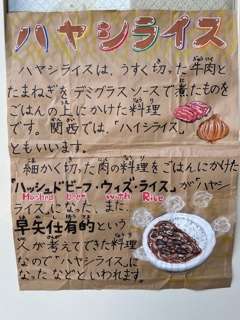 ハヤシライス
ハヤシライスは、うすく切った牛肉と
たまねぎをデミグラスソースで煮たものを
ごはんの上にかけた料理
です。関西では、「ハイシライス」
ともいいます。
細かく切った肉の料理をごはんにかけた
"ハッシュドビーフ・ウィズ・ライス"が"ハヤシ
Hashed beef with Rice
ライス"になった、また、
早矢仕有的という
人が考えてできた料理
なので"ハヤシライス"に
なったなどといわれます。